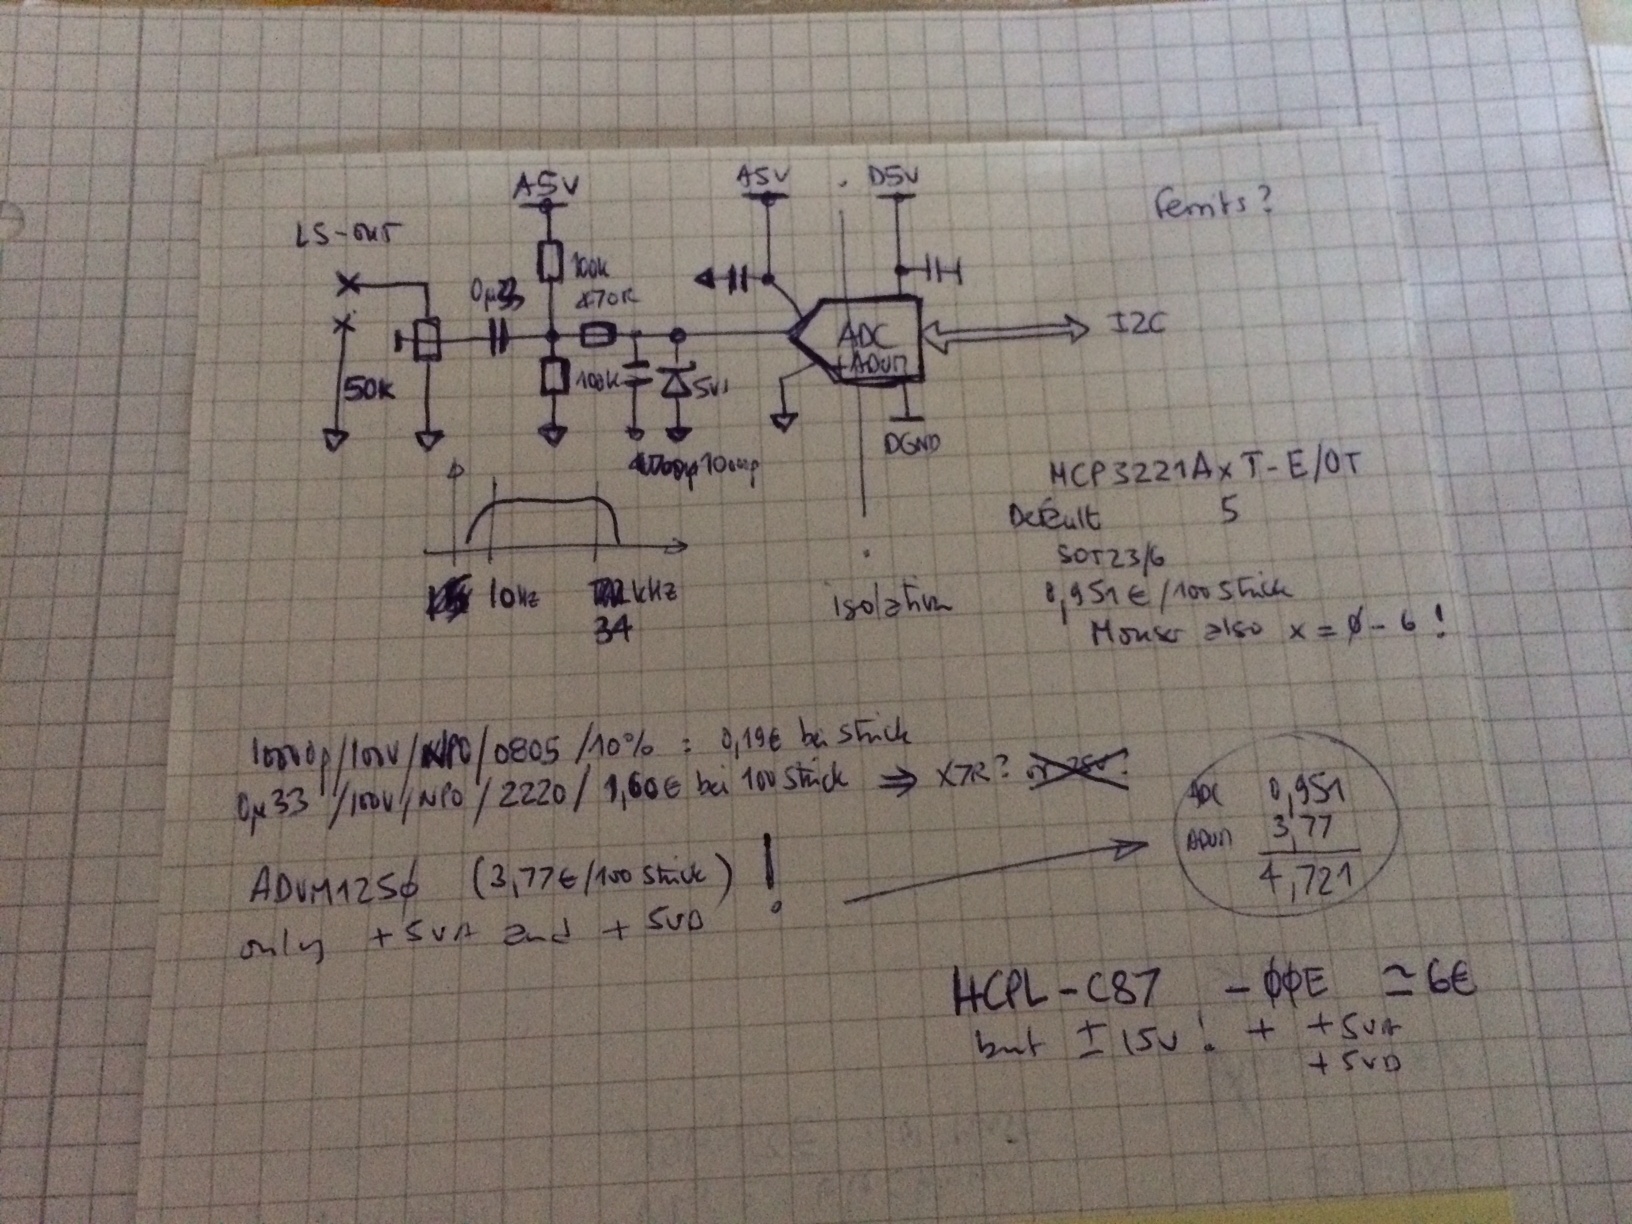 A5V
A5V
D5V
ferrits?
LS-OUT
100k
0µ33
470R
ADC
+ADUM
I2C
50K
100K
5V1
DGND
10000p
MCP3221AxT-E/OT
Default 5
SOT23/6
10Hz
kHz
34
isolation
0,951€/100 Stück
Mouser also x = 0 - 6 !
10000p/100V/NPO/0805/10% : 0,19€ bei Stück
0µ33 /100V/NPO/2220/ 1,60€ bei 100 Stück ⇒ X7R?
ADC 0,951
ADUM 3,77
4,721
ADUM1250 (3,77€/100 Stück) !
only +5VA and +5VD
HCPL-C87 -00E ≃ 6€
but ±15V! + +5VA
+5VD